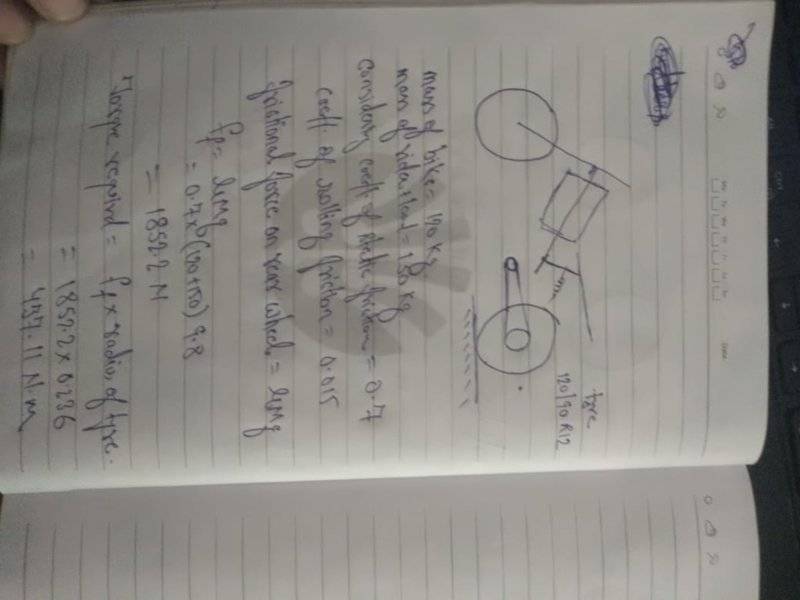 tyre
120/90 R12
mass of bike = 120 kg
mass of rider+load = 150 kg
Considering coeff of static friction = 0.7
coeff. of rolling friction = 0.015
frictional force on rear wheel = μMg
Ff = μMg
= 0.7x(120+150) 9.8
= 1852.2 N
Torque required = Ff x radius of tyre.
= 1852.2 x 0.236
= 437.11 N.m